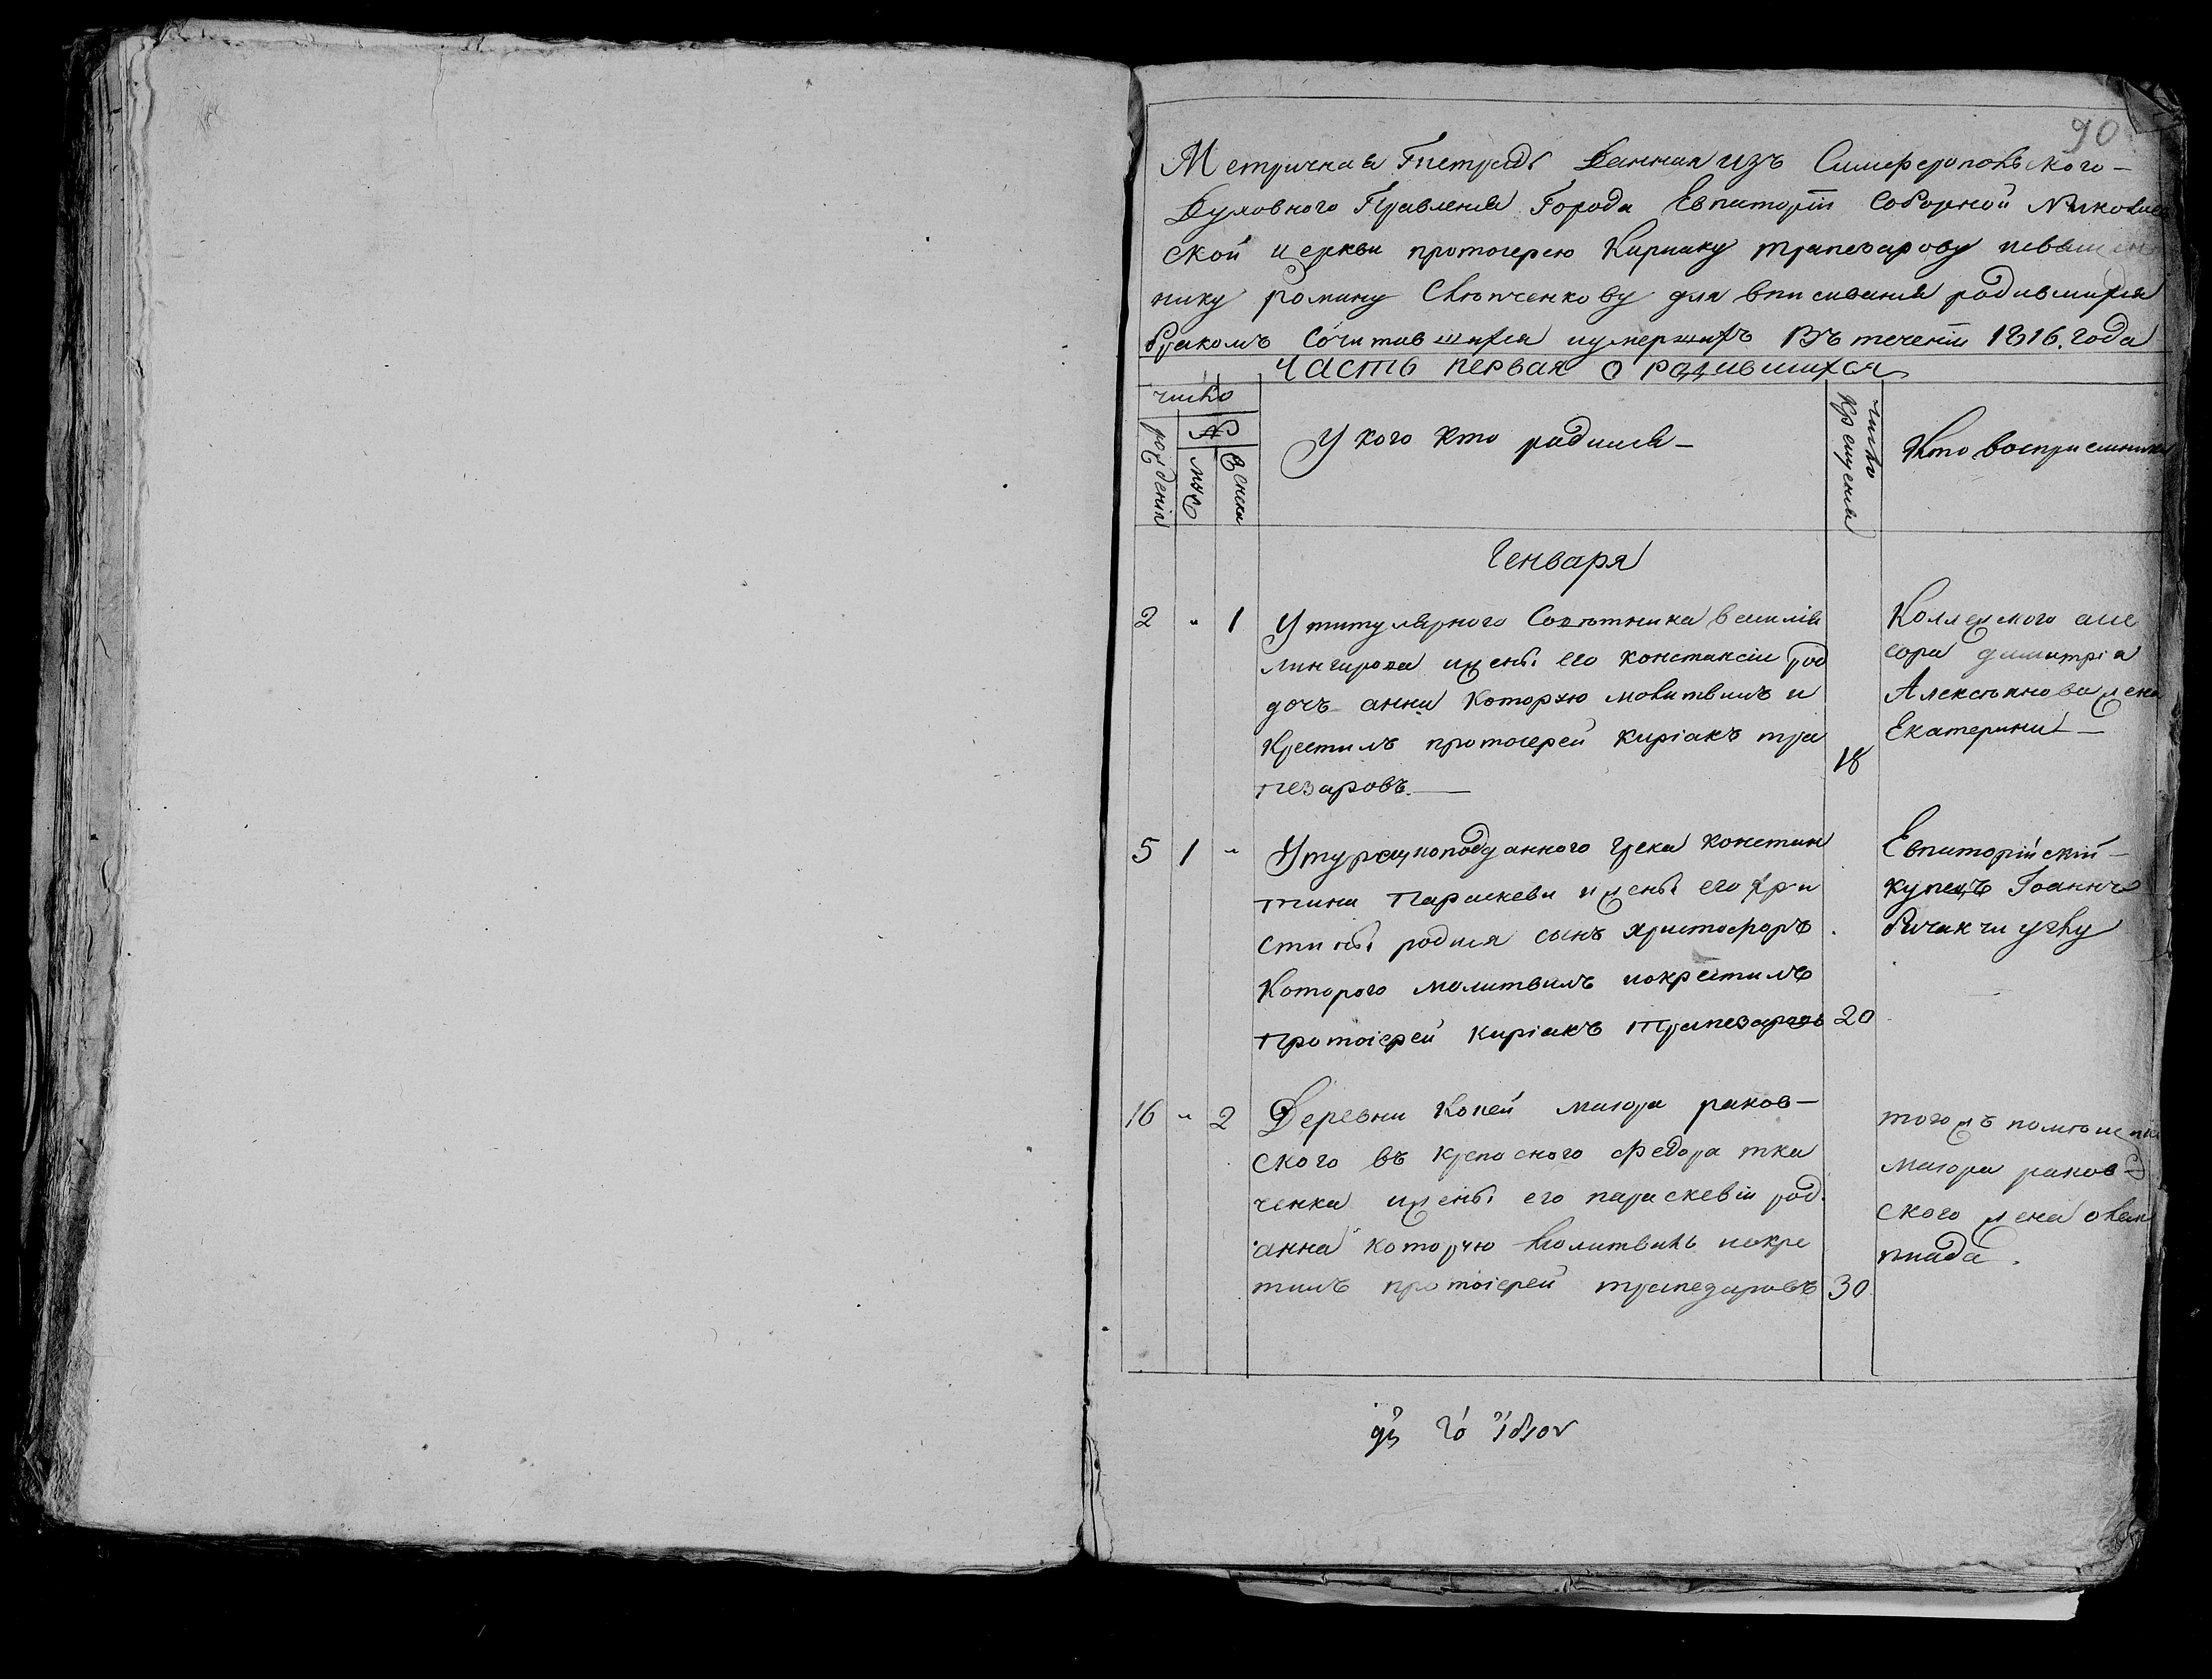 90
Метричная Тистрадь Данная изъ Симферопольского-
Духовного Правления Города Евпаторіи Соборной Николаев
ской церкви протоиерею Кириаку трапезарову исвящен
нику роману Слюпченкову для вписивания родившихся
бракомъ сочитавшихся иумершихъ Въ течении 1816. года
часть первая о радившихся
число
рождения
№
муж
женска
У кого кто родился-
число
крещения
Кто восприемники
Генваря
2 " 1 У титулярного Советника василия
лингирова ижены его констансии род
дочъ анна которую молитвилъ и
крестилъ протоиерей киріакъ тра
пезаровъ.—
18
Коллежского асе
сора димитрія
Алексианова жена
Екатерина—
5 1 " Утурецкоподданного грека констан
тина Параскева ижены его хри
стины родился сынъ христофоръ
Которого молитвилъ икрестилъ
Протоіерей киріакъ Трапезаровъ
20
Евпаторійскій-
купецъ Іоаннъ
бичакчи углу
16 " 2 Деревни Копей маиора раков-
ского въ крепосного федора тка
ченка ижены его параскевіи род.
анна которую молитвилъ икре
тилъ протоіерей трапезаровъ
30
тогожъ помещика
маиора раков-
ского жена олим
пиада.
τὸ ἴδιον